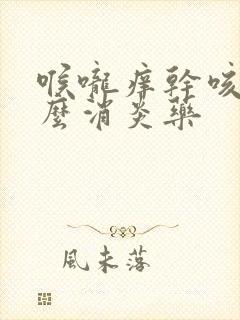 喉嚨痒幹咳
麼消炎藥
風未落